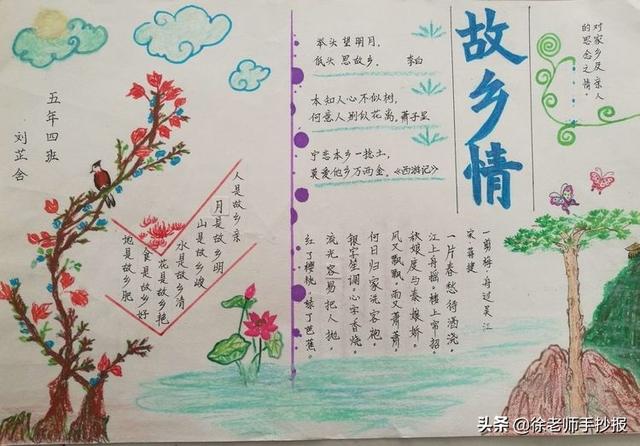 故乡情
对家乡及亲人
的思念之情。
举头望明月，
低头思故乡。 李白
本知人心不似树，
何意人别似花离 萧子显
宁恋本乡一捻土，
莫爱他乡万两金。《西游记》
五年四班
刘芷含
人是故乡亲
月是故乡明
山是故乡峻
水是故乡清
花是故乡艳
食是故乡好
地是故乡肥
一剪梅·舟过吴江
宋·蒋捷
一片春愁待酒浇。
江上舟摇，楼上帘招。
秋娘度与泰娘娇。
风又飘飘，雨又萧萧。
何日归家洗客袍。
银字笙调，心字香烧。
流光容易把人抛。
红了樱桃，绿了芭蕉。
头条 @徐老师手抄报